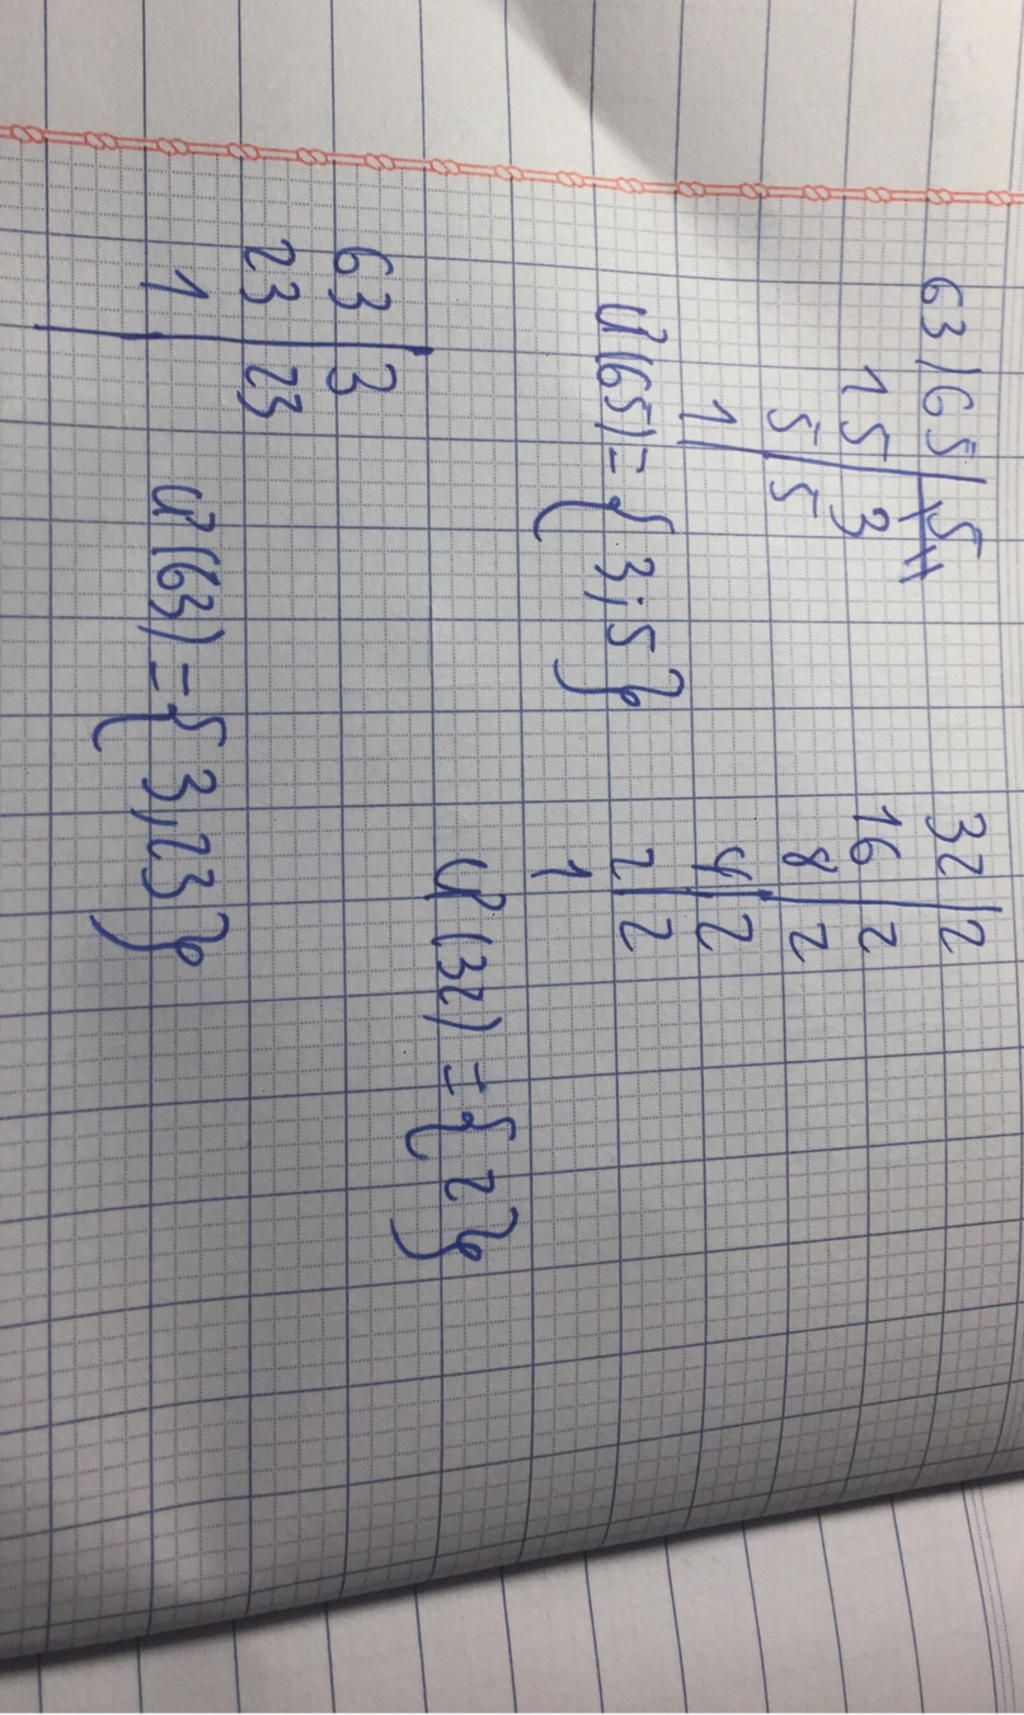 63/ 65 | 5
15 | 3
5 | 5
1 |
Ư(65) = { 3; 5 }
32 | 2
16 | 2
8 | 2
4 | 2
2 | 2
1
Ư(32) = { 2 }
63 | 3
23 | 23
1 |
Ư(63) = { 3, 23 }